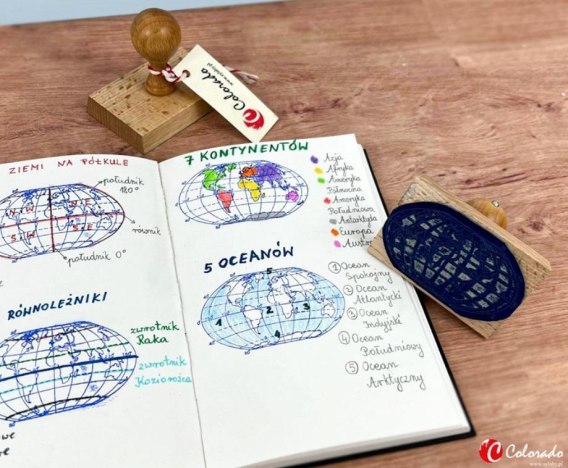 Colorado
ZIEMI NA PÓŁKULE
południk
180°
N W
N E
S W
S E
równik
południk 0°
RÓWNOLEŻNIKI
zwrotnik
Raka
zwrotnik
Koziorożca
7 KONTYNENTÓW
Azja
Afryka
Ameryka
Północna
Ameryka
Południowa
Antarktyda
Europa
5 OCEANÓW
5
1
2
3
4
① Ocean
Spokojny
② Ocean
Atlantycki
③ Ocean
Indyjski
④ Ocean
Południowy
⑤ Ocean
Arktyczny
Colorado